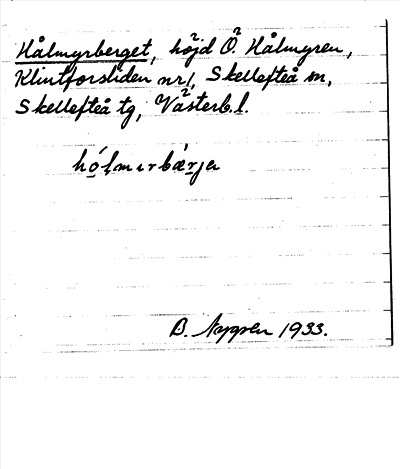 Hålmyrberget, höjd Ö. Hålmyren,
Klintforsliden nr 1, Skellefteå sn,
Skellefteå tg, Västerb.l.
hó̲l̲mırbæ̀r̲jə
B. Nygren 1933.